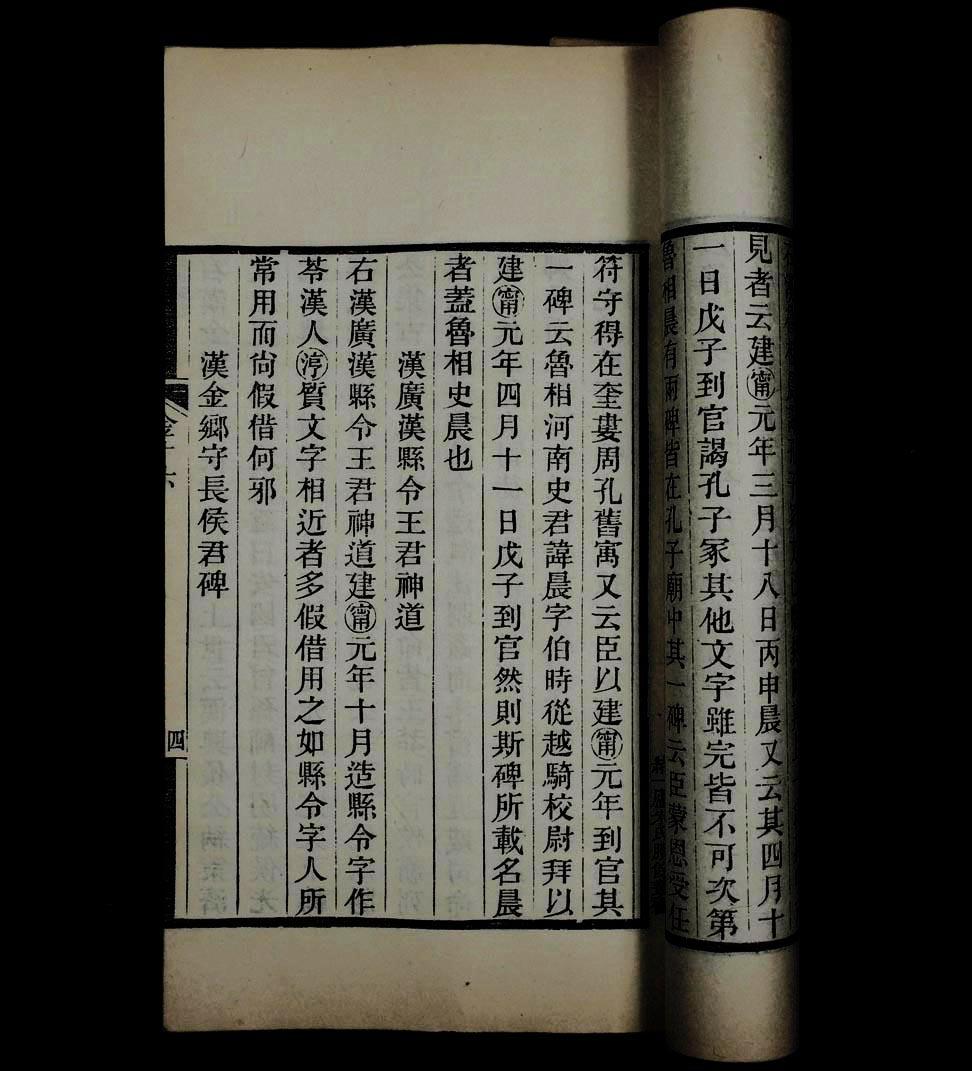 見者云建甯元年三月十八日丙申晨又云其四月十
一日戊子到官謁孔子冢其他文字雖完皆不可次第
魯相晨有兩碑皆在孔子廟中其一碑云臣蒙恩受任
符守得在奎婁周孔舊寓又云臣以建甯元年到官其
一碑云魯相河南史君諱晨字伯時從越騎校尉拜以
建甯元年四月十一日戊子到官然則斯碑所載名晨
者蓋魯相史晨也
漢廣漢縣令王君神道
右漢廣漢縣令王君神道建甯元年十月造縣令字作
苓漢人渟質文字相近者多假借用之如縣令字人所
常用而尚假借何邪
漢金鄉守長侯君碑
四